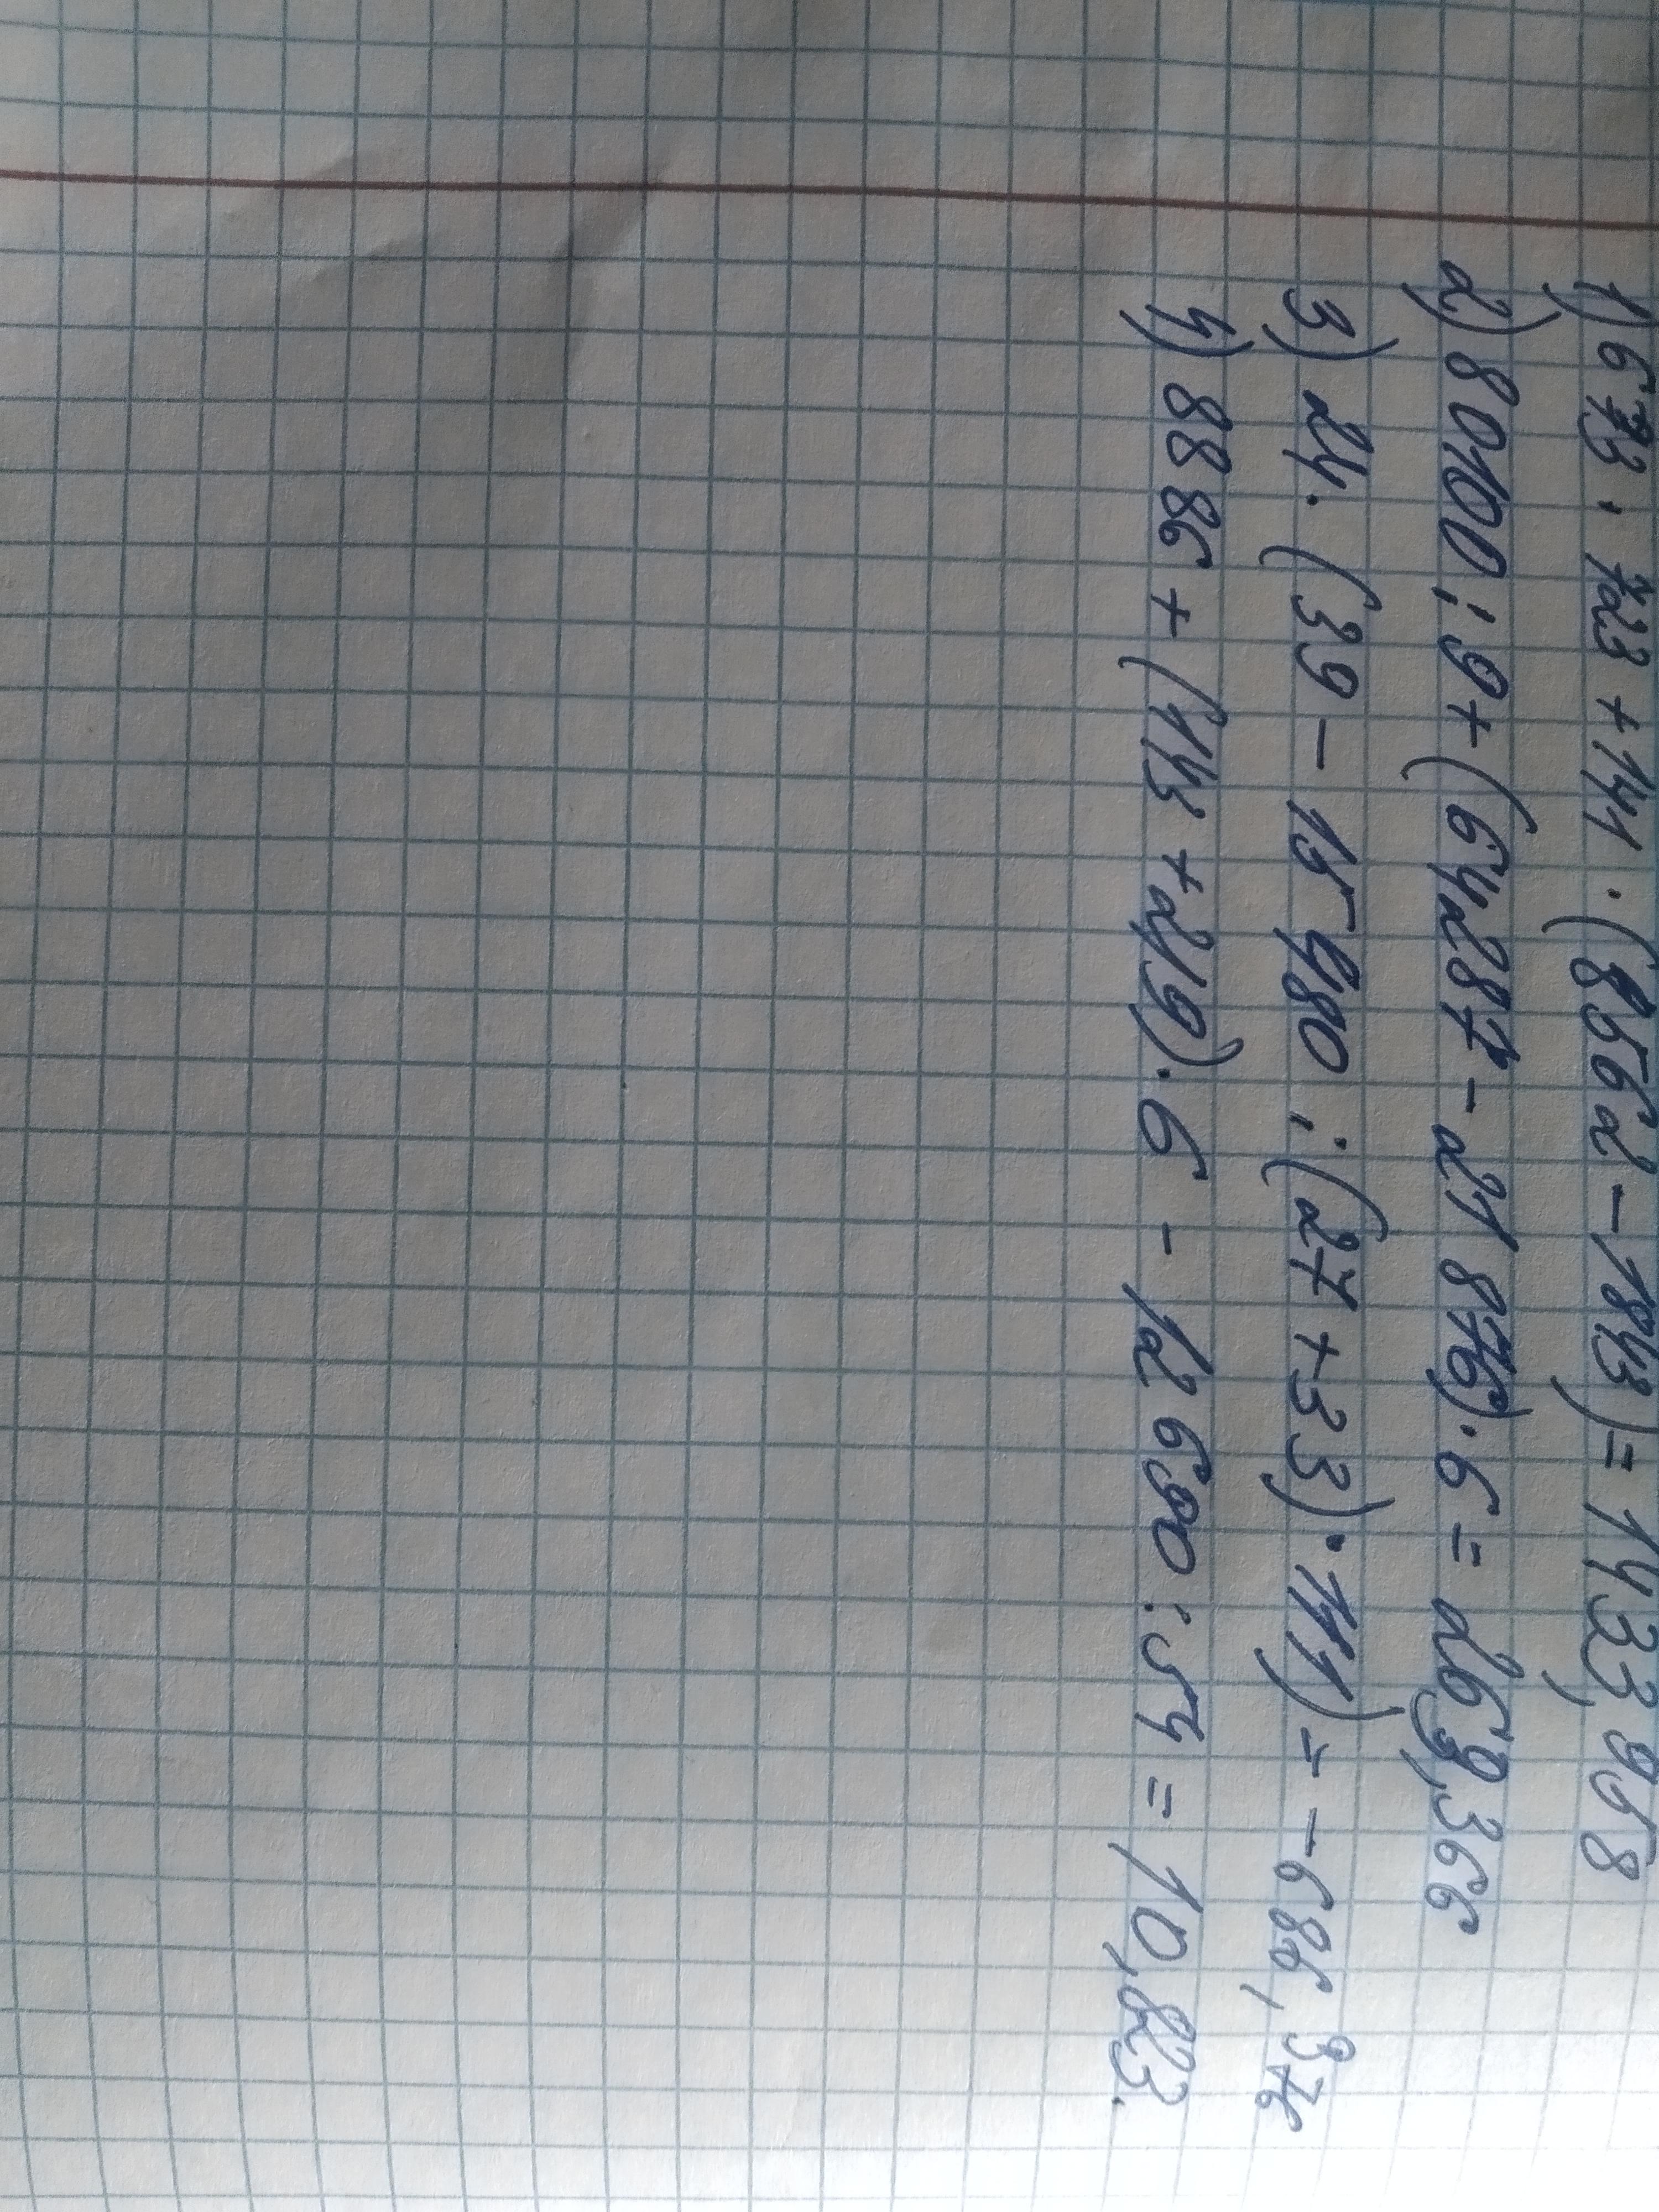 1) 673 · 723 + 141 · (8562 - 1843) = 1433,958
2) 80100 : 9 + (64287 - 21 876) · 6 = 263,366
3) 24 · (39 - 15 480 : (27 + 33) · 111) = -686,376
4) 8886 + (143 + 219) · 6 - 12 690 : 54 = 10,823.